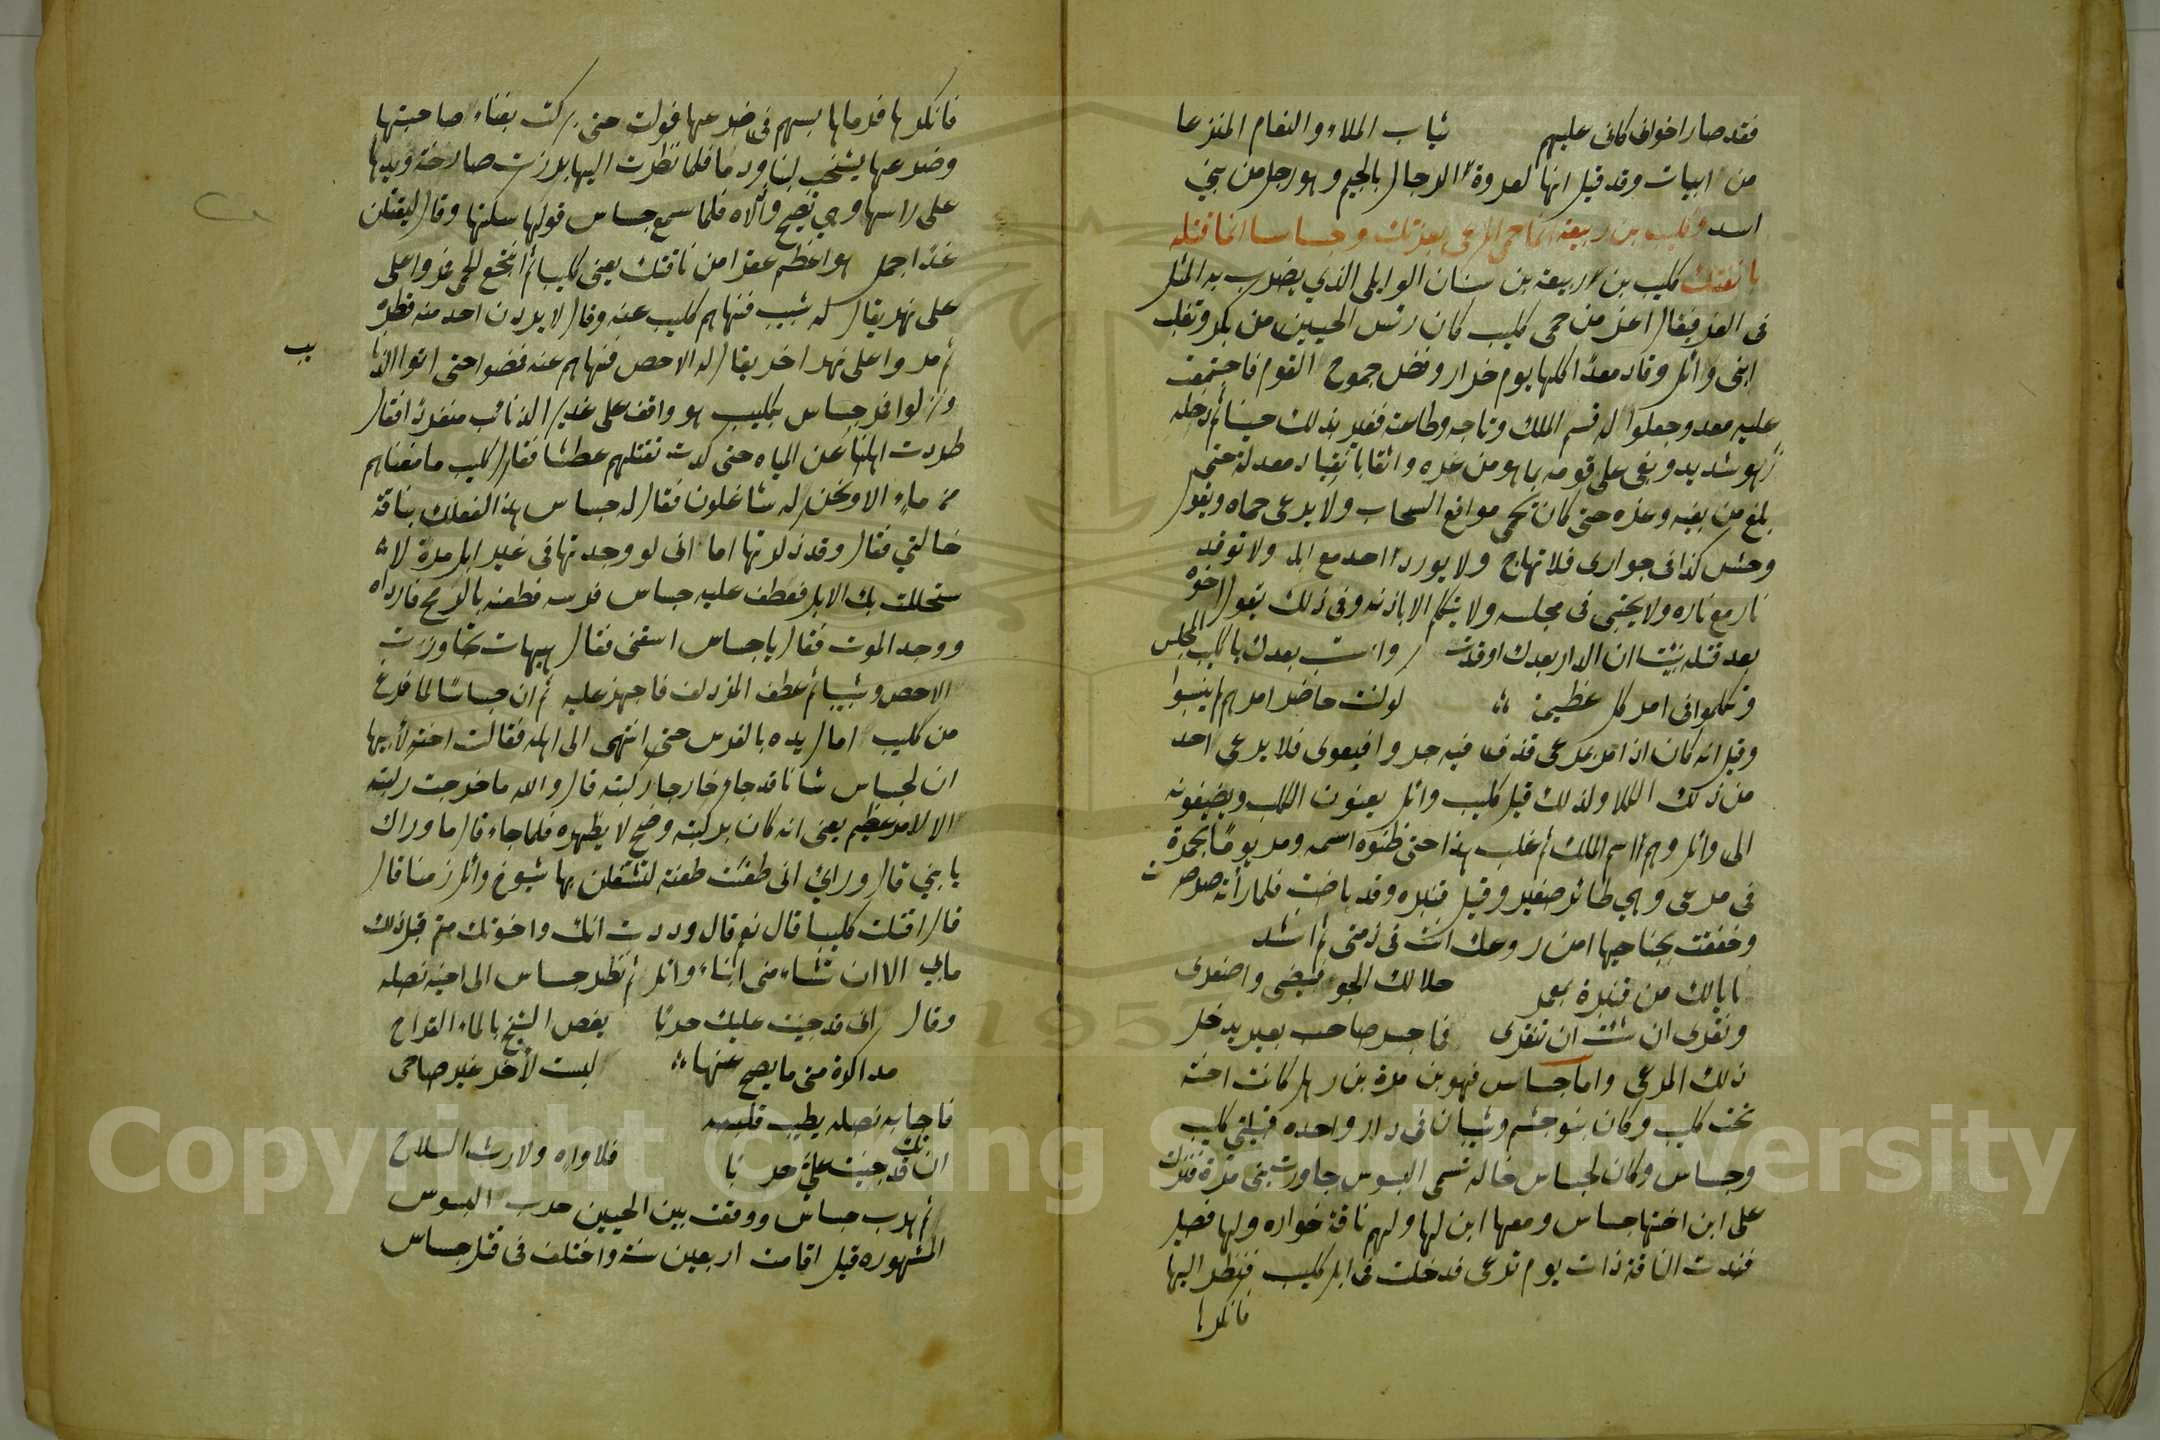 فقد صار اخوانى كانى عليهم ثياب الملاء والنعام المنزعا
من ابيات وقد قيل انها لعروة الرحال بالجيم وهو رجل من بني
اسد وكليب بن ربيعة انما حمى المرعى بعزتك وجساسا انما قتله
بانفتك كليب بن ربيعة بن سنان الوايلى الذي يضرب به المثل
فى العز فيقال اعز من حمى كليب كان رئيس الحيين من بكر وتغلب
ابنى وائل وقاد معدا كلها يوم خزار وفض جموح القوم فاجتمعت
عليه معد وجعلوا له قسم الملك وتاجه وطاعته فغبر بذلك حينا ثم دخله
زهو شديد وبغى على قومه بما هو من عزه وانقياد معد له حتى
بلغ من بغيه وعزه حتى كان يحمى مواقع السحاب ولا يرعى حماه ويقول
وحش كذا فى جوارى فلا تهاج ولا يورد احد مع ابله ولا توقد
نار مع ناره ولا يحتبى فى مجلسه ولا يتكلم الا باذنه وفى ذلك يقول اخوه
بعد قتله نبئت ان النار بعدك اوقدت واستب بعدك يا كليب المجلس
وتكلموا فى امر كل عظيمة لو كنت حاضر امرهم لم ينبسوا
وقيل انه كان اذا مر بمرعى قذف فيه جروا فيعوى فلا يرعى احد
من ذلك الكلاء ولذلك قيل كليب وائل يعنون الكلب ويضيفونه
الى وائل وهم اسم الملك ثم غلب هذا حتى ظنوه اسمه ومر يوما بحمرة
فى مرعى وهي طائر صغير وقيل قنبره وقد باضت فلما رأته صرصرت
وخفقت بجناحيها امن روعك انت فى ذمتى ثم انشد
يا لك من قنبرة بمعمر خلا لك الجو فبيضى واصفرى
ونقرى ان شئت ان تنقرى فما جسر صاحب بعير يدخل
ذلك المرعى واما جساس فهو بن مرة بن ذهل كانت اخته
تحت كليب وكان بنو جشم وشيبان فى دار واحده
وجساس وكان لجساس خاله تسمى البسوس جاورت بنى مرة فنزلت
على ابن اختها جساس ومعها ابن لها ولهم ناقة خواره ولها فصيل
فندت الناقة ذات يوم ترعى فدخلت فى ابل كليب فنظر اليها
فانكرها
فانكرها فرماها بسهم فى ضرعها فولت حتى بركت بفناء صاحبتها
وضرعها يشخب لبنا ودما فلما نظرت اليها برزت صارخة ويدها
على راسها وهي تصيح واذلاه فلما سمع جساس قولها سكنها وقال ليقتلن
غدا جمل هو اعظم عقرا من ناقتك يعنى كليبا ثم انتجع الحى فمروا على
على نهر يقال له شبيب فنهاهم كليب عنه وقال لا يردن احد منه قطرة
ثم مروا على نهر اخر يقال له الاحص فنهاهم عنه فمضوا حتى اتوا الذنا
يب
ونزلوا فمر جساس بكليب هو واقف على غدير الذنائب منفردا فقال
طردت اهلنا عن المياه حتى كدت تقتلهم عطشا فقال كليب ما منعناهم
من ماء الا ونحن له شاغلون فقال له جساس هذا كفعلك بناقة
خالتي فقال وقد ذكرتها اما انى لو وجدتها فى غير ابل مرة لا
ستحللت بك الابل فعطف عليه جساس فرسه فطعنه بالرمح فارداه
ووجد الموت فقال يا جساس اسقنى فقال هيهات تجاوزت
الاحص وشبيبا ثم عطف المزدلف فاجهز عليه ثم ان جساسا لما فرغ
من كليب امال يده بالفرس حتى انتهى الى اهله فقالت اخته لأبيها
ان لجساس شانا قد جاء خارجا ركبته قال والله ما خرجت ركبته
الا لامر عظيم يعنى انه كان بركبته وضح لا يظهره فلما جاء قال ما وراك
يا بني قال وراي انى طعنت طعنة لتشغلن بها شيوخ وائل زمنا قال
قال اقتلت كليبا قال نعم قال وددت انك واخوتك متم قبل ذلك
مابي الا ان تتشاءم منى ابناء وائل ثم نظر جساس الى اخيه نضله
وقال انى قد جنيت عليك حربا يغص الشيخ بالماء القراح
مذكرة متى ما يصح عنها لبست لأخر غير صاحى
فاجابه نضله يطيب قلبه
ان تك قد جنيت علي حربا فلا واه ولا رث السلاح
ثم هرب جساس ووقعت بين الحيين حرب البسوس
المشهوره قيل اقامت اربعين سنة واختلف فى قتل جساس
Copyright © King Saud University
1957